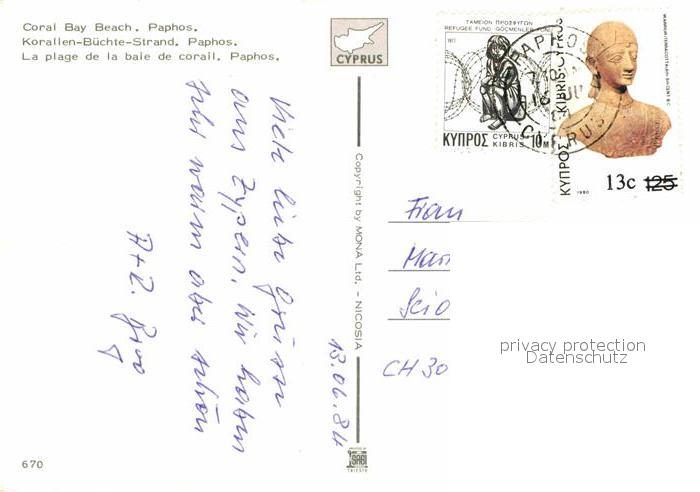 Coral Bay Beach, Paphos.
Korallen-Büchte-Strand, Paphos.
La plage de la baie de corail, Paphos.
CYPRUS
ΤΑΜΕΙΟΝ ΠΡΟΣΦΥΓΩΝ
REFUGEE FUND GÖÇMENLER FONU
1977
ΚΥΠΡΟΣ CYPRUS KIBRIS 10M
ΚΥΠΡΟΣ KIBRIS CYPRUS
1980
13c 125
PAPHOS
CYPRUS
Viele liebe Grüsse
aus Zypern. Wir haben
sehr warm aber schön
A+R.
13.06.84
Copyright by MONA Ltd. - NICOSIA
Frau
CH 30
privacy protection
Datenschutz
670